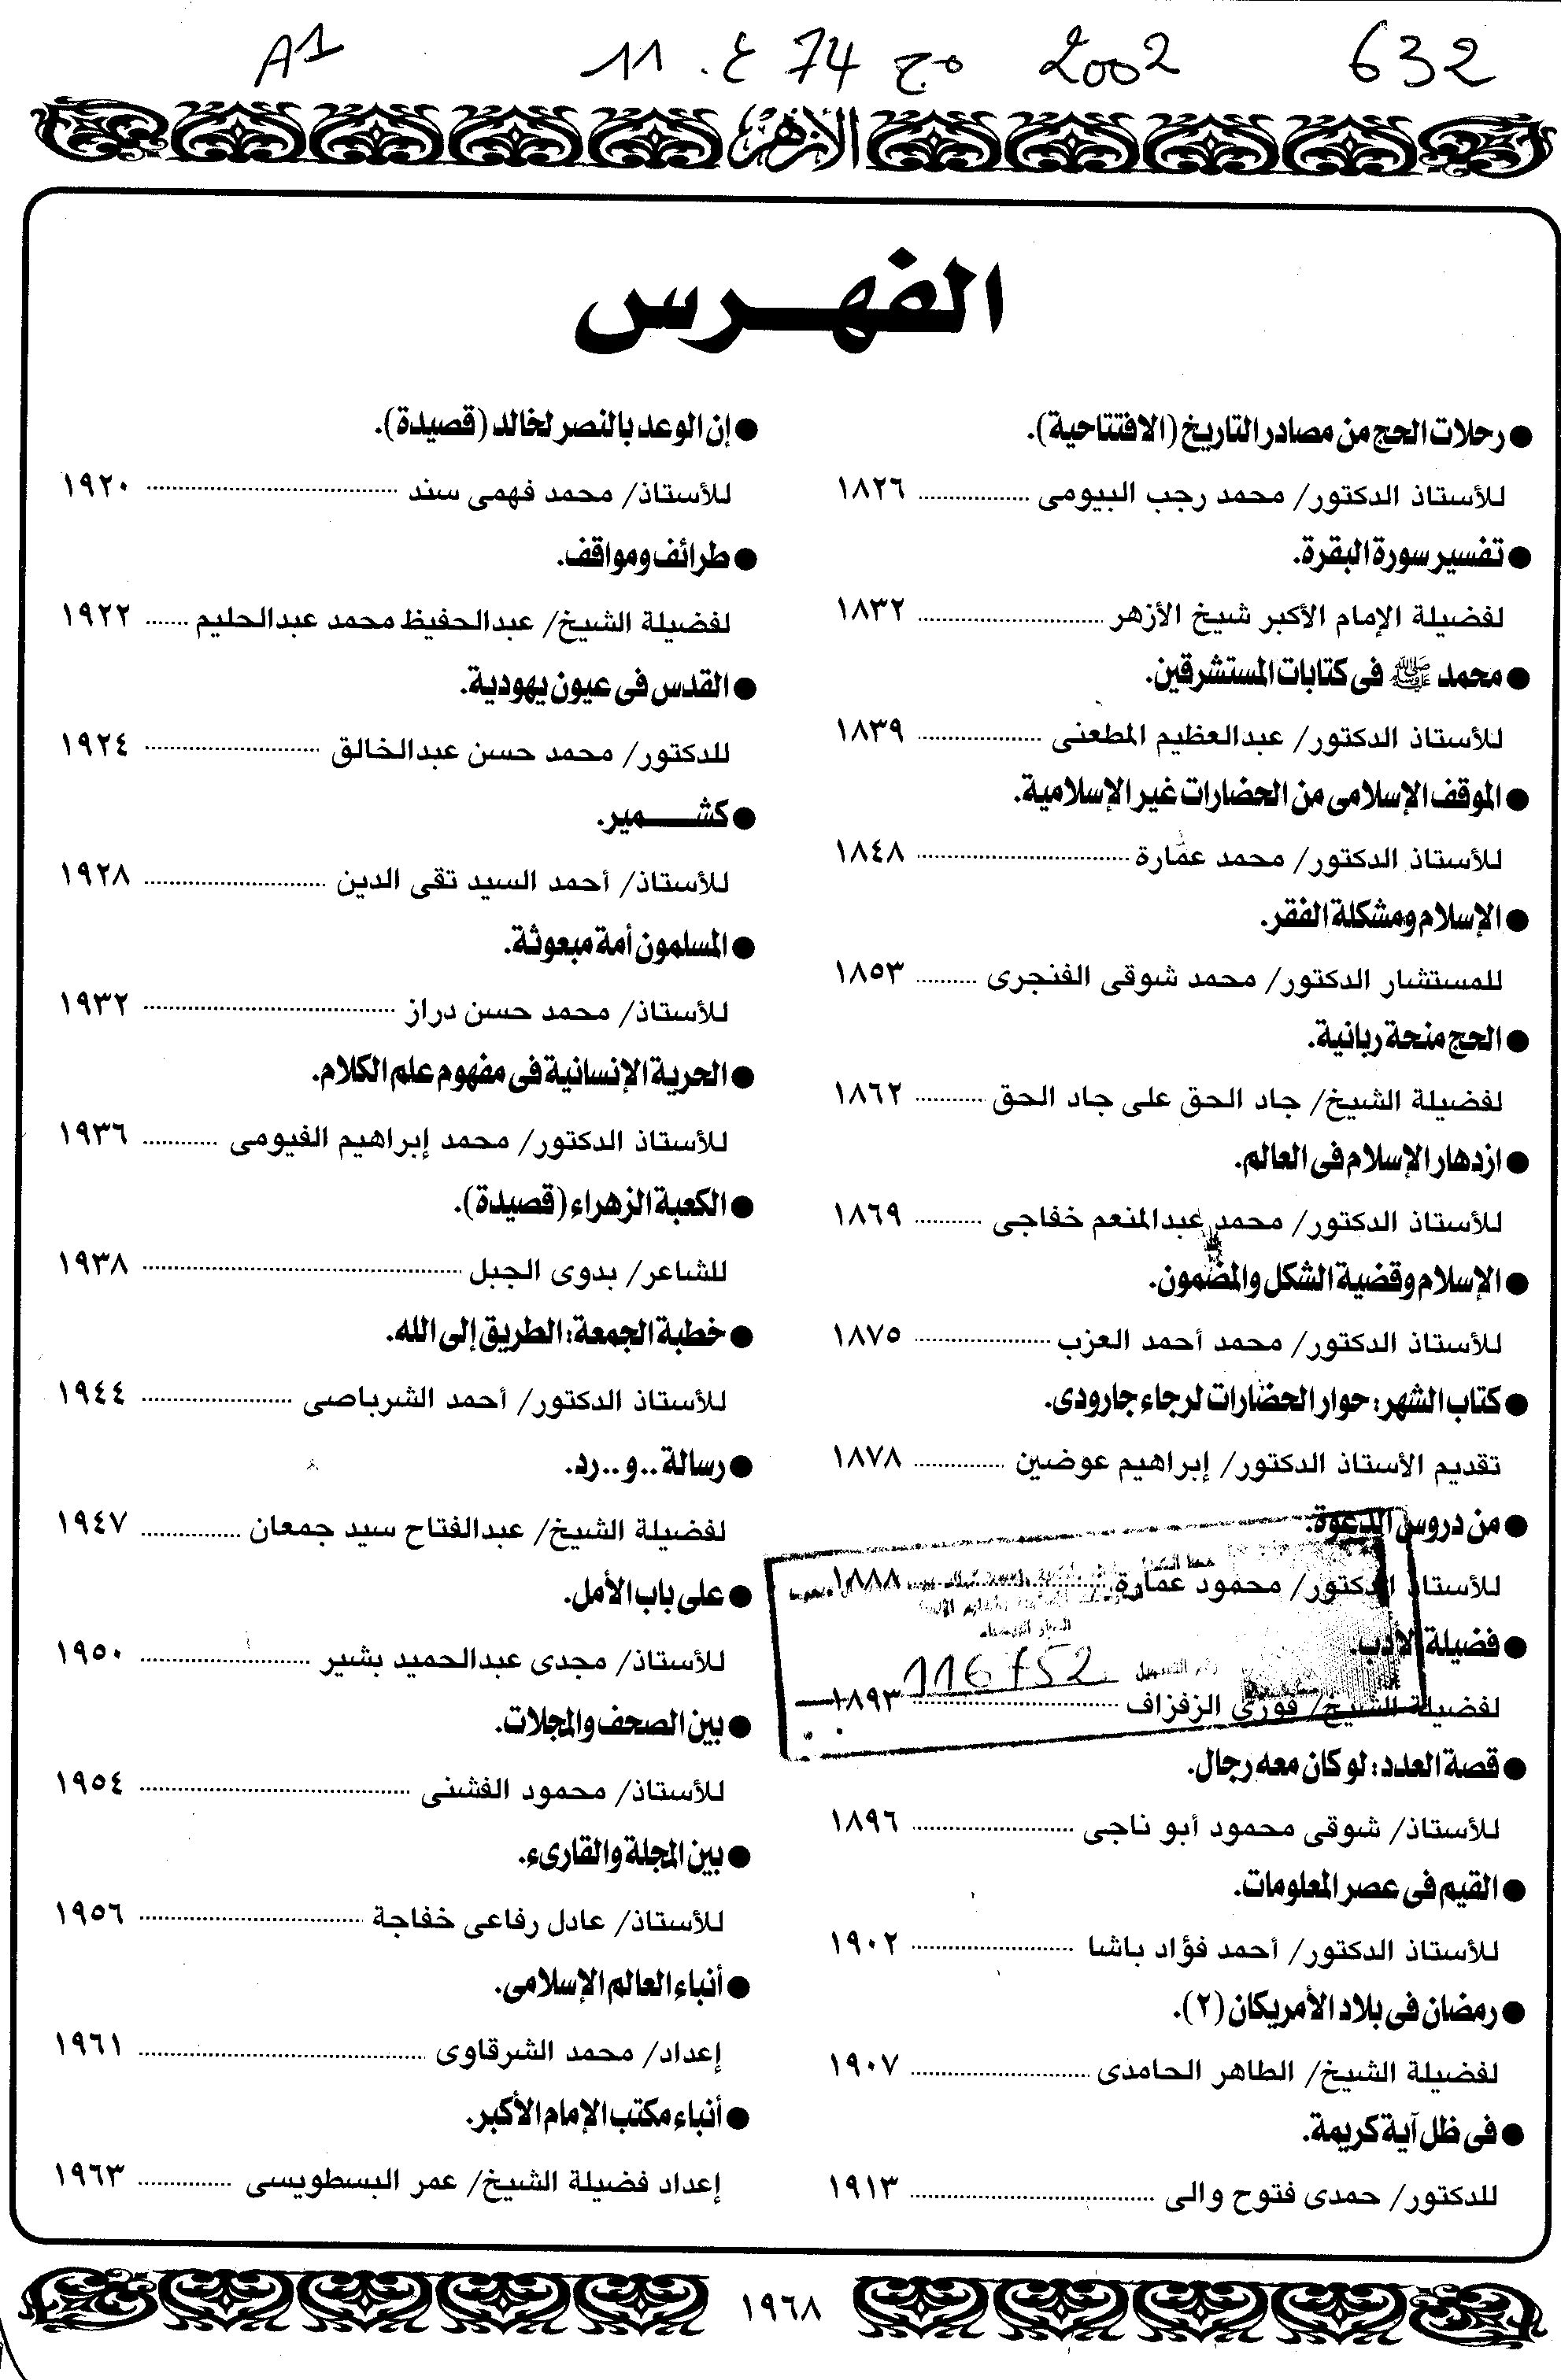 632 2002 مج 74 ع. 11 A1
الأزهر
الفهرس
● رحلات الحج من مصادر التاريخ (الافتتاحية).
للأستاذ الدكتور/ محمد رجب البيومى ........ ١٨٢٦
● تفسير سورة البقرة.
لفضيلة الإمام الأكبر شيخ الأزهر ........ ١٨٣٢
● محمد ﷺ فى كتابات المستشرقين.
للأستاذ الدكتور/ عبدالعظيم المطعنى ........ ١٨٣٩
● الموقف الإسلامى من الحضارات غير الإسلامية.
للأستاذ الدكتور/ محمد عمارة ........ ١٨٤٨
● الإسلام ومشكلة الفقر.
للمستشار الدكتور/ محمد شوقى الفنجرى ........ ١٨٥٣
● الحج منحة ربانية.
لفضيلة الشيخ/ جاد الحق على جاد الحق ........ ١٨٦٢
● ازدهار الإسلام فى العالم.
للأستاذ الدكتور/ محمد عبدالمنعم خفاجى ........ ١٨٦٩
● الإسلام وقضية الشكل والمضمون.
للأستاذ الدكتور/ محمد أحمد العزب ........ ١٨٧٥
● كتاب الشهر: حوار الحضارات لرجاء جارودى.
تقديم الأستاذ الدكتور/ إبراهيم عوضين ........ ١٨٧٨
● من دروس الدعوة.
للأستاذ الدكتور/ محمود عمارة ........ ١٨٨٨
● فضيلة الأدب.
116752
لفضيلة الشيخ/ فوزى الزفزاف ........ ١٨٩٣
● قصة العدد: لو كان معه رجال.
للأستاذ/ شوقى محمود أبو ناجى ........ ١٨٩٦
● القيم فى عصر المعلومات.
للأستاذ الدكتور/ أحمد فؤاد باشا ........ ١٩٠٢
● رمضان فى بلاد الأمريكان (٢).
لفضيلة الشيخ/ الطاهر الحامدى ........ ١٩٠٧
● فى ظل آية كريمة.
للدكتور/ حمدى فتوح والى ........ ١٩١٣
● إن الوعد بالنصر لخالد (قصيدة).
للأستاذ/ محمد فهمى سند ........ ١٩٢٠
● طرائف ومواقف.
لفضيلة الشيخ/ عبدالحفيظ محمد عبدالحليم ...... ١٩٢٢
● القدس فى عيون يهودية.
للدكتور/ محمد حسن عبدالخالق ........ ١٩٢٤
● كشـــمير.
للأستاذ/ أحمد السيد تقى الدين ........ ١٩٢٨
● المسلمون أمة مبعوثة.
للأستاذ/ محمد حسن دراز ........ ١٩٣٢
● الحرية الإنسانية فى مفهوم علم الكلام.
للأستاذ الدكتور/ محمد إبراهيم الفيومى ........ ١٩٣٦
● الكعبة الزهراء (قصيدة).
للشاعر/ بدوى الجبل ........ ١٩٣٨
● خطبة الجمعة: الطريق إلى الله.
للأستاذ الدكتور/ أحمد الشرباصى ........ ١٩٤٤
● رسالة .. و .. رد.
لفضيلة الشيخ/ عبدالفتاح سيد جمعان ........ ١٩٤٧
● على باب الأمل.
للأستاذ/ مجدى عبدالحميد بشير ........ ١٩٥٠
● بين الصحف والمجلات.
للأستاذ/ محمود الفشنى ........ ١٩٥٤
● بين المجلة والقارىء.
للأستاذ/ عادل رفاعى خفاجة ........ ١٩٥٦
● أنباء العالم الإسلامى.
إعداد/ محمد الشرقاوى ........ ١٩٦١
● أنباء مكتب الإمام الأكبر.
إعداد فضيلة الشيخ/ عمر البسطويسى ........ ١٩٦٣
١٩٦٨